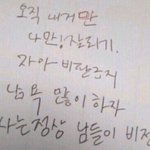 오직 내거만
나만! 잘되기.
자아 비판금지
남 욕 많이 하자
나는 정상 남들이 비정